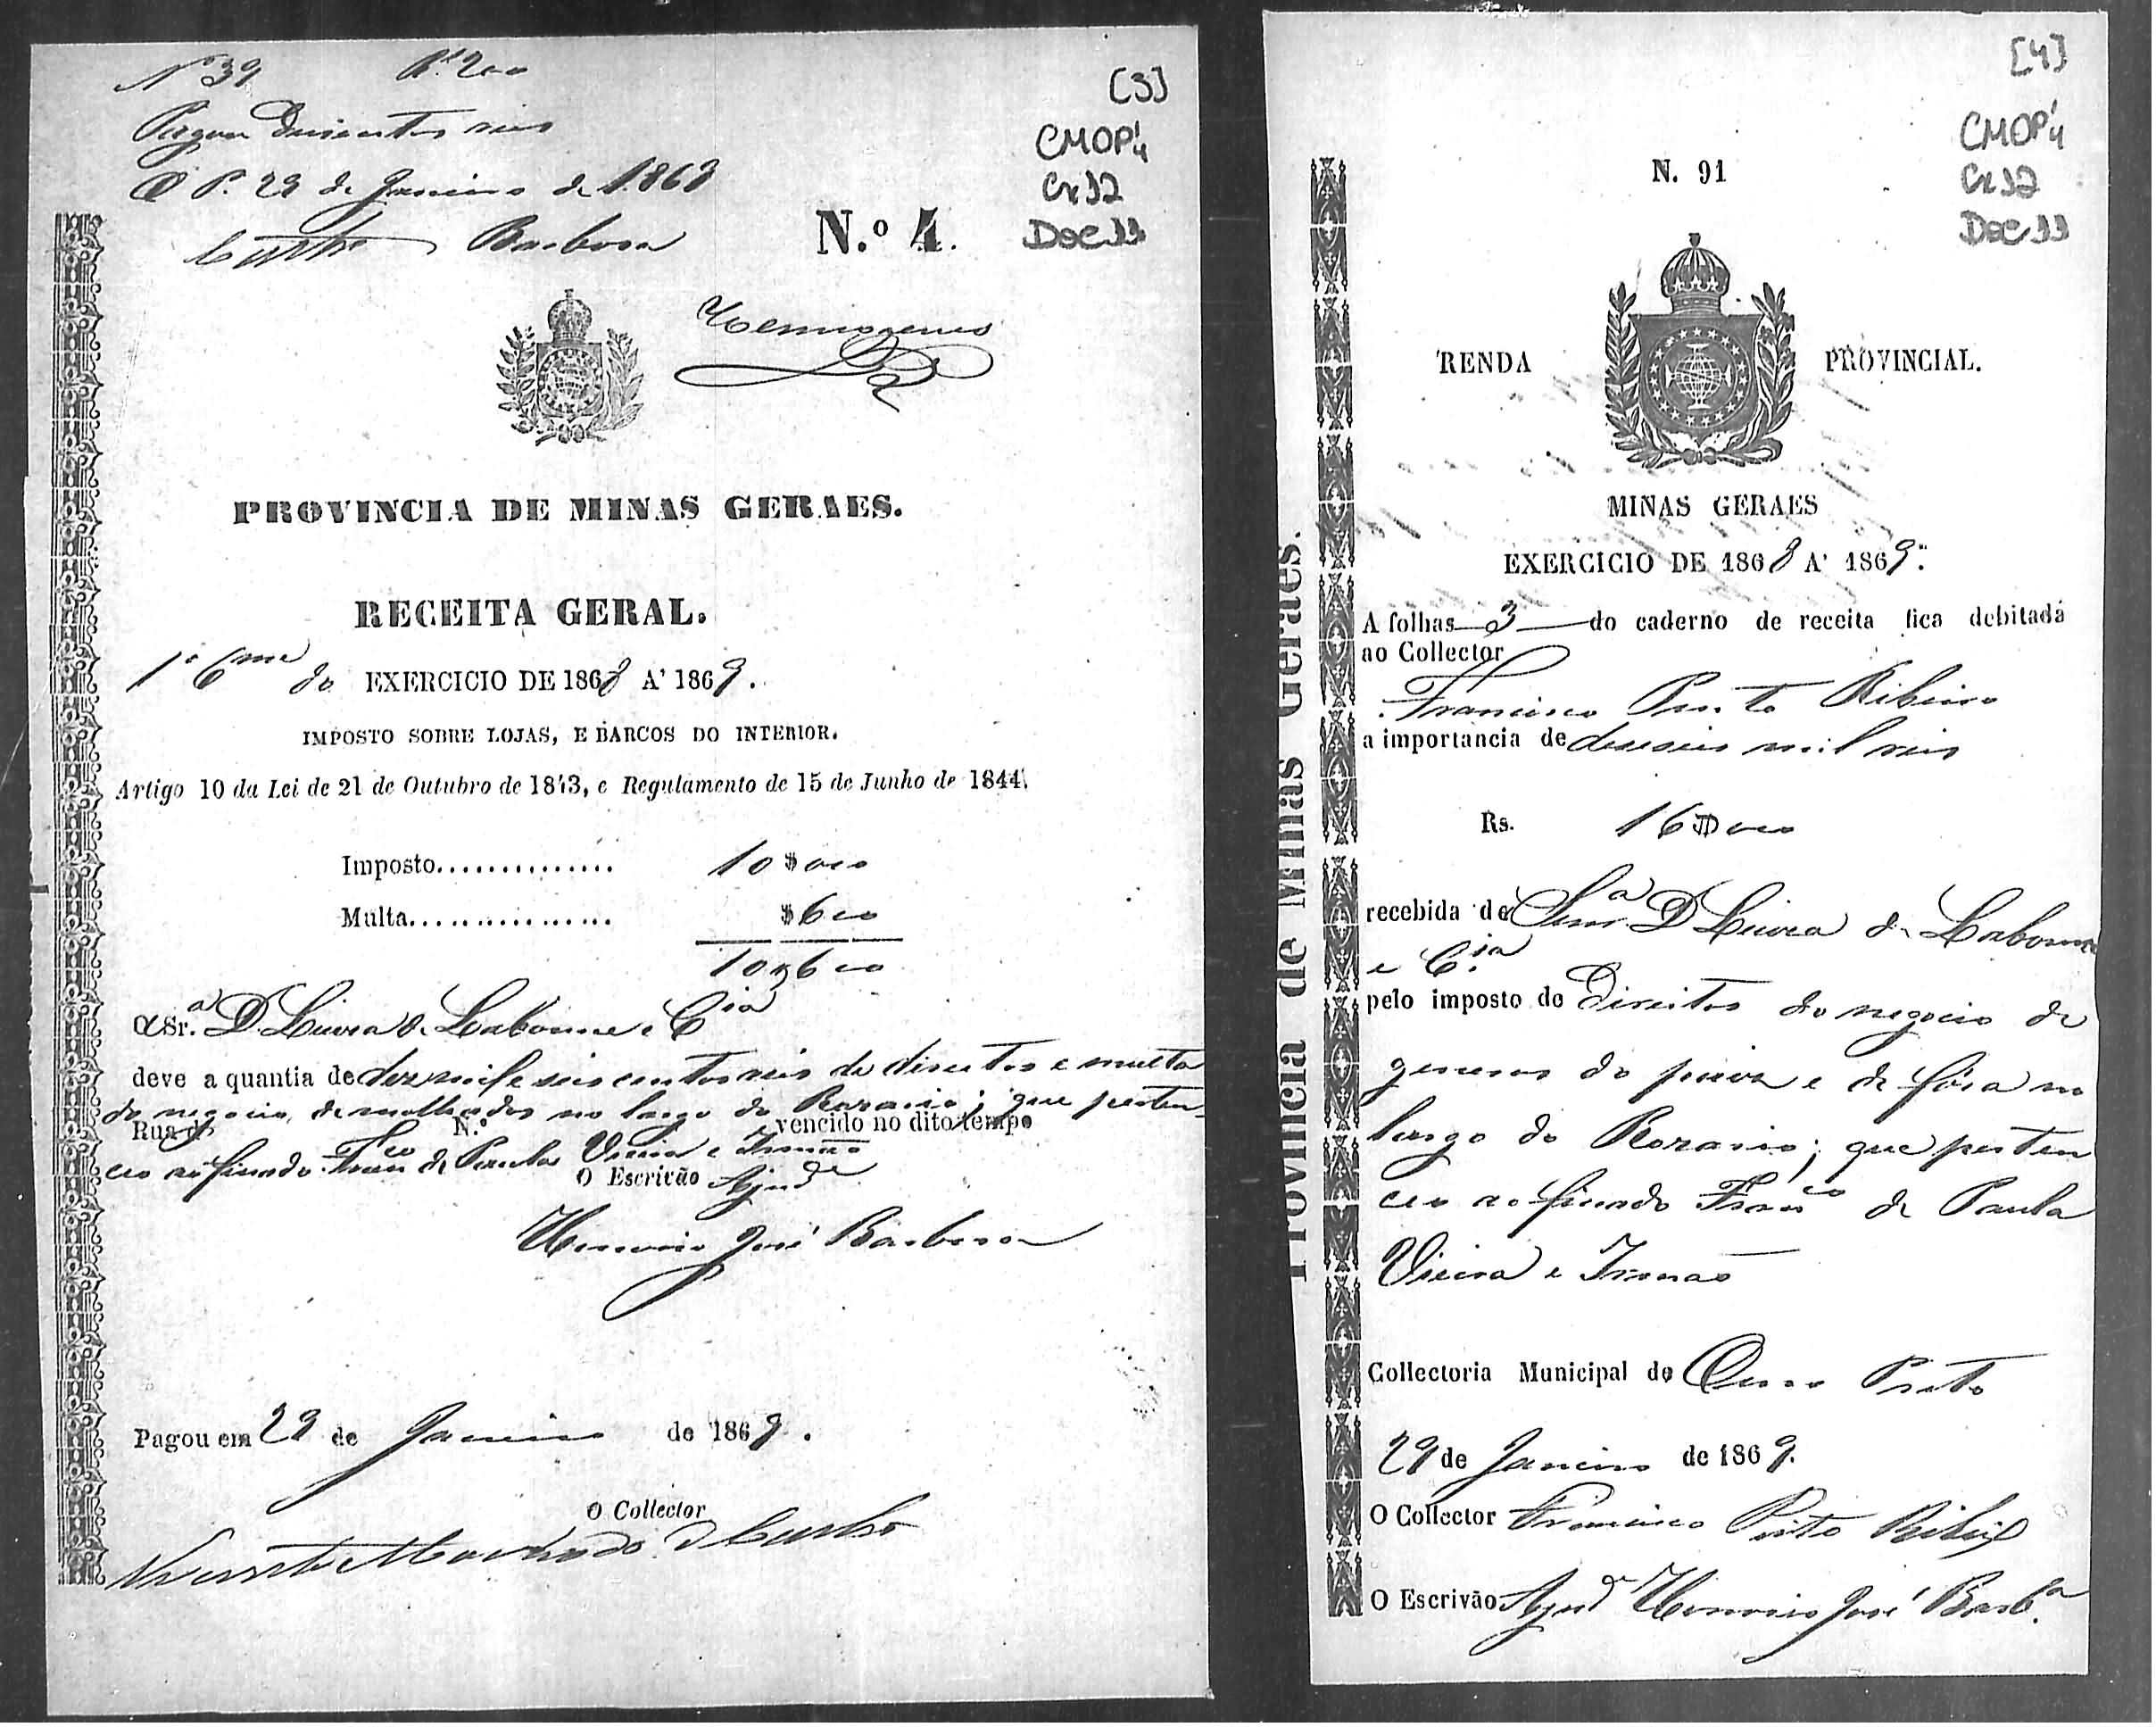 N 39 Rs 200
Pagou Duzentos reis
O P. 29 de Janeiro de 1869
Castro Barbosa
[3]
CMOP'4
Cx12
Doc 11
N.º 4.
PROVINCIA DE MINAS GERAES.
RECEITA GERAL.
1º 6me do EXERCICIO DE 1868 A' 1869.
IMPOSTO SOBRE LOJAS, E BARCOS DO INTERIOR.
Artigo 10 da Lei de 21 de Outubro de 1843, e Regulamento de 15 de Junho de 1844.
Imposto............... 10$000
Multa................ $600
10$600
A Sr.ª D. de Labourne e Cia
deve a quantia de dez mil e seis centos reis de direitos e multa
do negocio de molhados no largo do Rosario; que perten-
Rua de N.º vencido no dito tempo
ceo ao finado Franco de Paula Vieira e Irmão
O Escrivão Ajude
Honorio José Barbosa
Pagou em 29 de Janeiro de 1869.
O Collector
Vicente Machado de Castro
[4]
CMOP'4
Cx12
Doc 11
N. 91
RENDA PROVINCIAL.
MINAS GERAES
EXERCICIO DE 1868 A' 1869.
A folhas 3 do caderno de receita fica debitada
ao Collector
Francisco Pinto Ribeiro
a importancia de deseseis mil reis
Rs. 16$000
recebida de Senrª D. de Labourne
e Cia
pelo imposto de Direitos do negocio de
generos do paiz e de fóra no
largo do Rozario; que perten
ceo ao finado Franco de Paula
Vieira e Irmão
Collectoria Municipal de Ouro Preto
29 de Janeiro de 1869.
O Collector Francisco Pinto Ribeiro
O Escrivão Ajude Honorio José Barbª
Provincia de Minas Geraes.